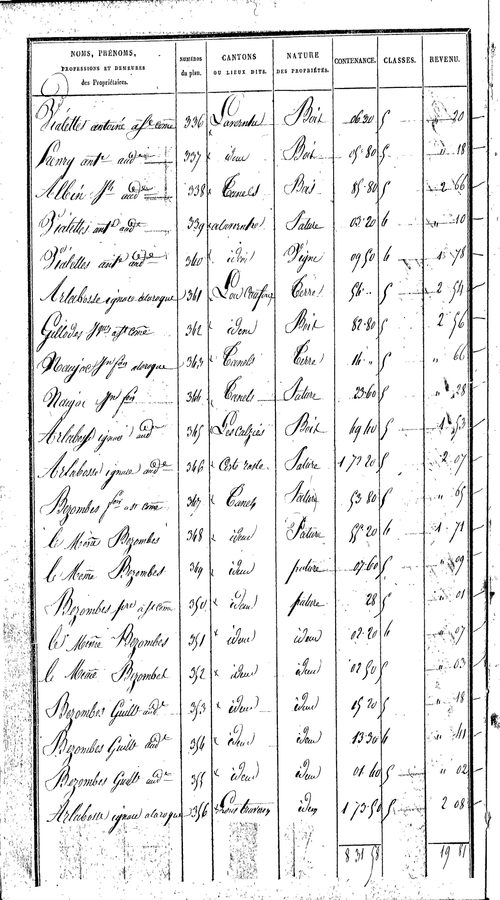 NOMS, PRÉNOMS, PROFESSIONS ET DEMEURES des Propriétaires. NUMÉROS du plan. CANTONS OU LIEUX DITS. NATURE DES PROPRIÉTÉS. CONTENANCE. CLASSES. REVENU.
Vialettes antoine à St come 336 Boit 06 30 5 " 20
Fleury ante aud 337 idem Boit 05 80 5 " 18
Albin Jh aud 338 Canels Bois 85 80 5 2 66
Vialettes ant aud 339 Pature 03 20 6 " 10
Vialettes ant aud 340 idem Vigne 09 50 6 1 78
Arlabosse ignace 341 Terre 56 " 5 2 54
Gillodes à St come 342 idem Boit 82 80 5 2 56
Naujac 343 Canels Terre 14 " 5 " 66
Naujac 344 Canels Pature 23 60 5 " 28
Arlabosse ignace aud 345 Les Calziés Boit 49 40 5 1 53
Arlabosse ignace aud 346 Pature 1 73 20 5 2 07
Bezombes à St come 347 Canels Pature 53 80 5 " 65
le Même Bezombes 348 idem Pature 55 20 6 1 71
le Même Bezombes 349 idem pature 07 60 5 " 09
Bezombes à St come 350 idem pature 28 5 " 01
le Même Bezombes 351 idem idem 02 20 6 " 07
le Même Bezombes 352 idem idem 02 50 5 " 03
Bezombes Guill aud 353 idem idem 05 20 5 " 18
Bezombes Guill aud 354 idem idem 13 30 6 " 41
Bezombes Guill aud 355 idem idem 01 40 5 " 02
Arlabosse ignace 356 idem 1 73 50 5 2 08
8 31 58 19 81